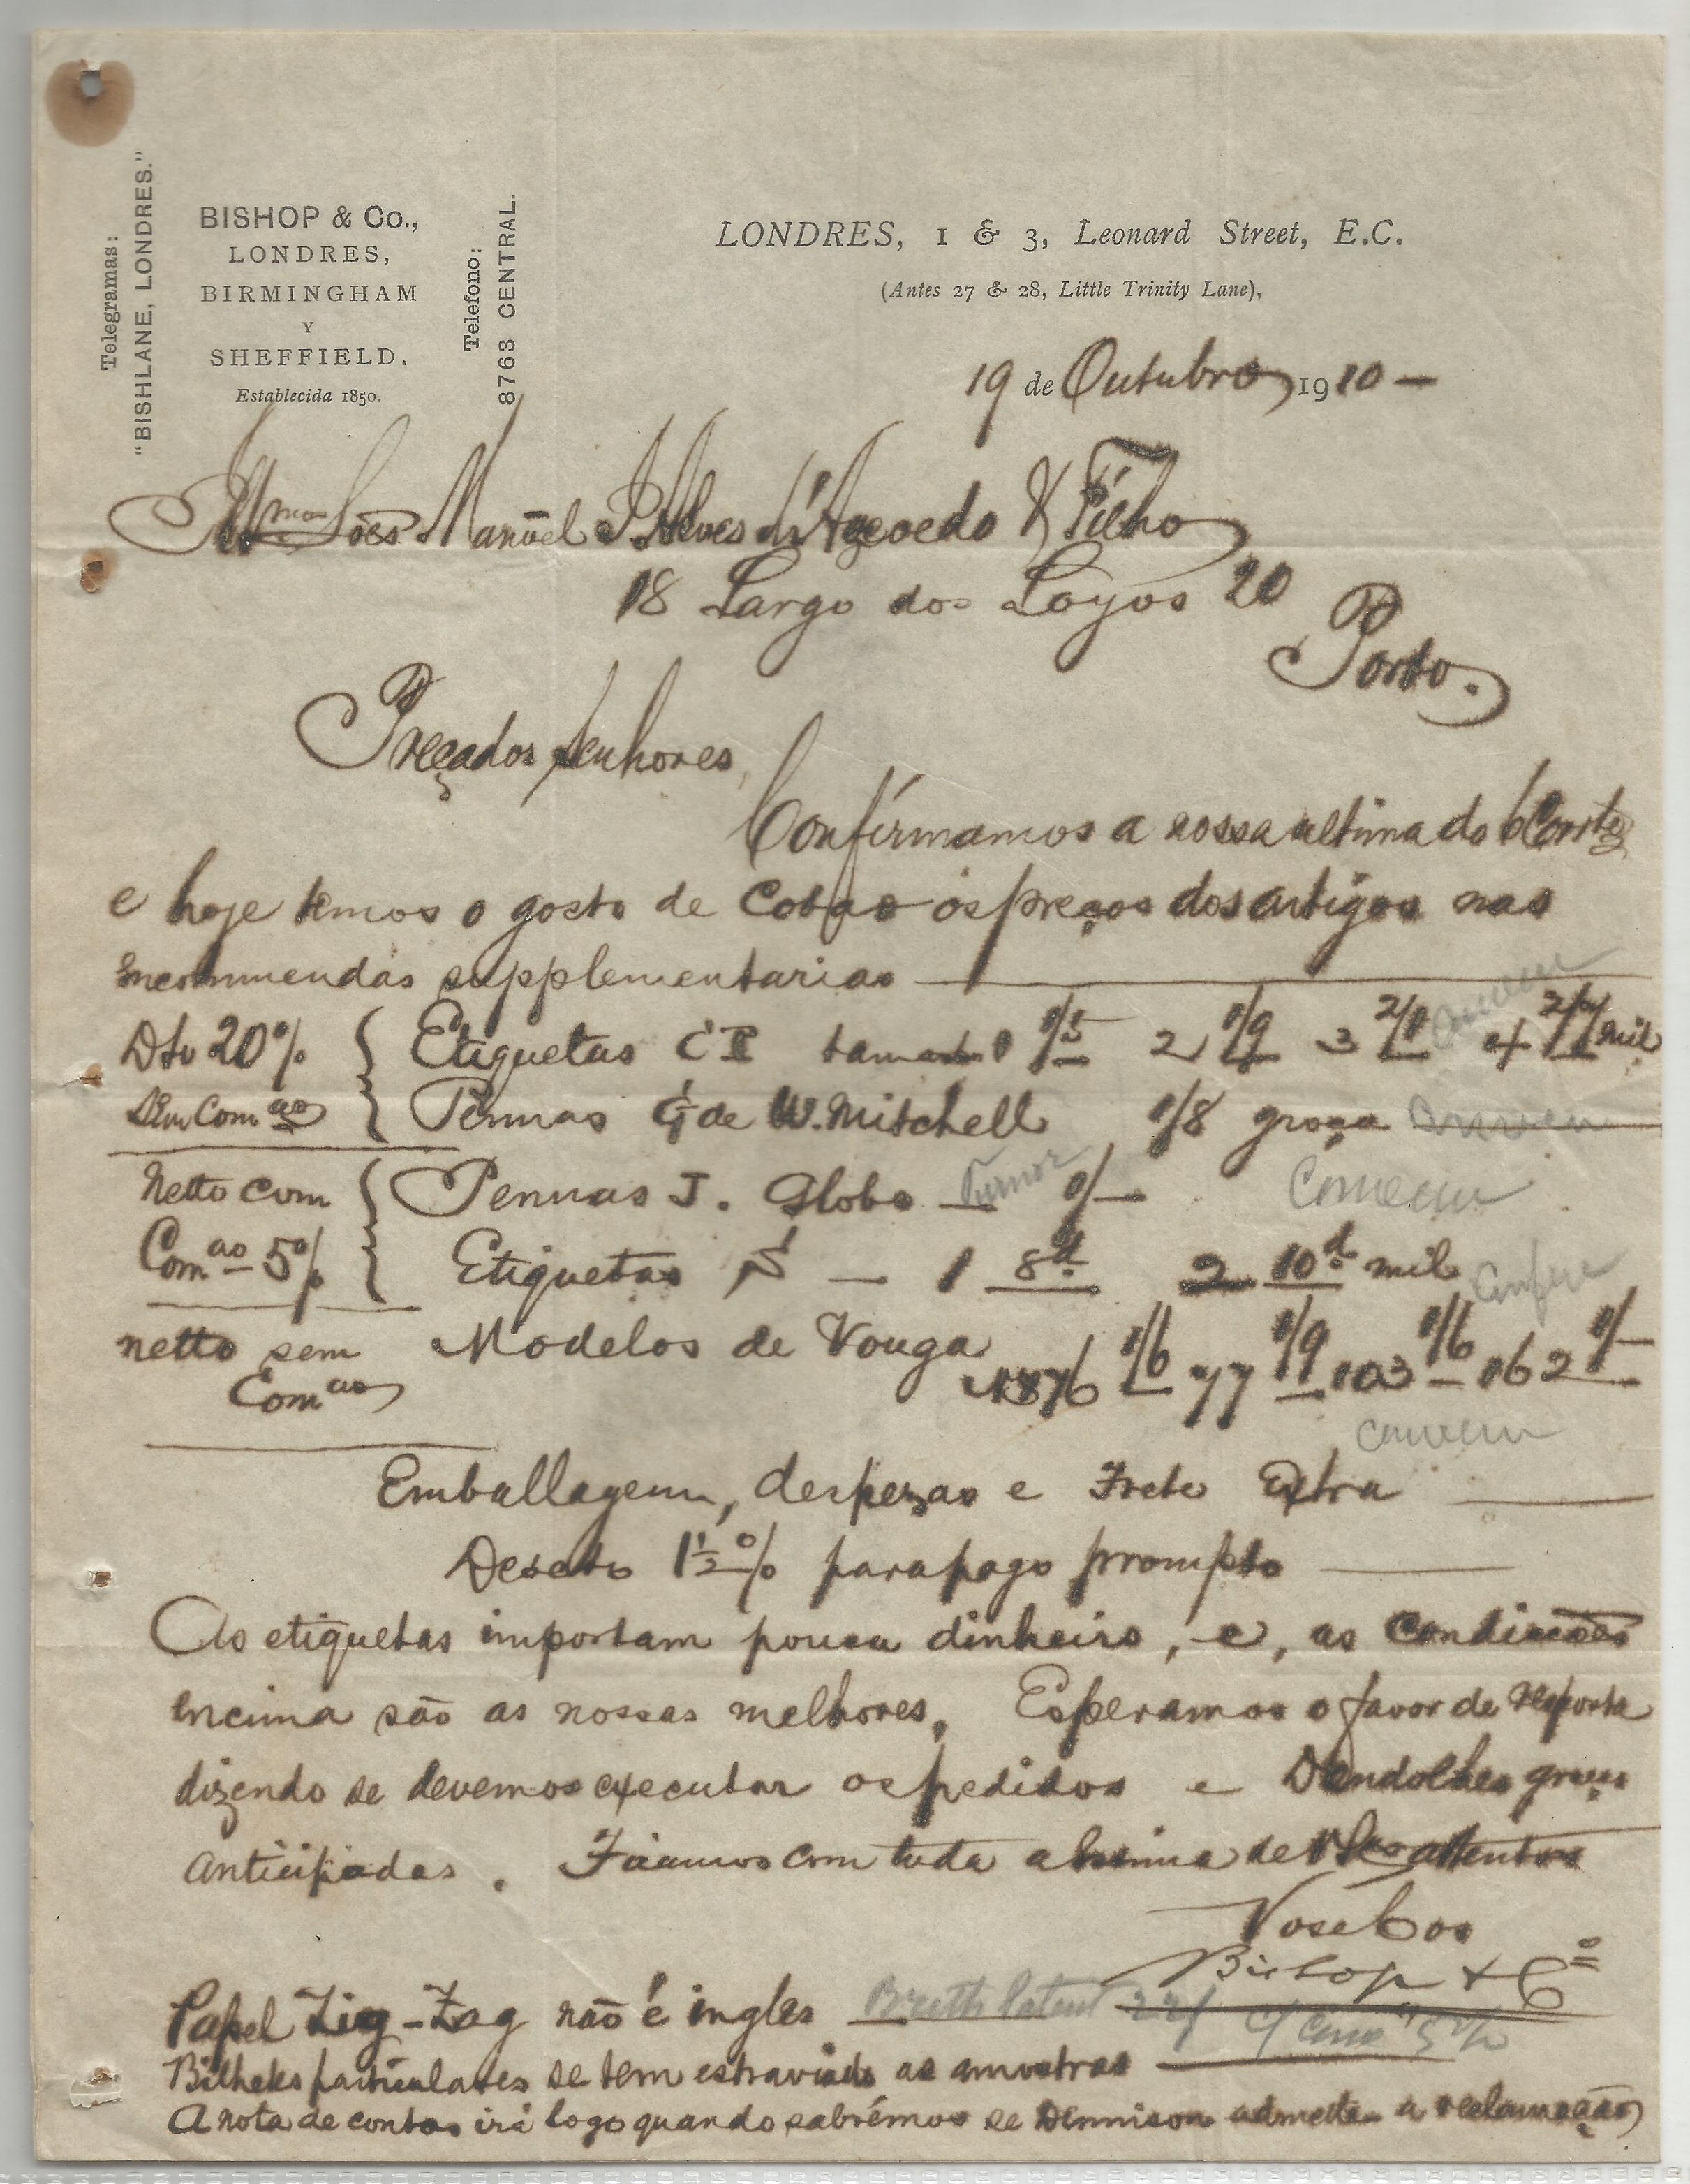 Telegramas:
"BISHLANE, LONDRES."
BISHOP & Co.,
LONDRES,
BIRMINGHAM
Y
SHEFFIELD.
Establecida 1850.
Telefono:
8763 CENTRAL.
LONDRES, 1 & 3, Leonard Street, E.C.
(Antes 27 & 28, Little Trinity Lane),
19 de Outubro 1910 —
Manoel Alves d'Azevedo & Filho
18 Largo dos Loyos 20
Porto.
Preçados Senhores,
Confirmamos a nossa ultima do
e hoje temos o gosto de os preços dos artigos nas
encommendas supplementarias
Dto 20% Etiquetas 1 1/5 2 1/9 3 4 mil
Sem Com ao Pennas de W. Mitchell 1/8 groça Convem
Netto com Pennas J. Globo 1/- Convem
Com ao 5% Etiquetas — 1 8d 2 10d mil
netto sem Modelos de Vouga
Com ao 76 1/6 77 1/9 103 1/6 162 1/-
Convem
Emballagem, despezas e Frete Extra
Descto 1½% para pago prompto
As etiquetas importam pouco dinheiro, e, as condições
encima são as nossas melhores. Esperamos o favor de resposta
dizendo se devemos executar os pedidos e Dandolhes graças
Anticipadas. Ficamos com toda de attentos
Bishop & Co
Papel Zig-Zag não é ingles
Bilhetes particulares se tem estraviado as amostras
A nota de contas irá logo quando sabrémos se Dennison admette a reclamação